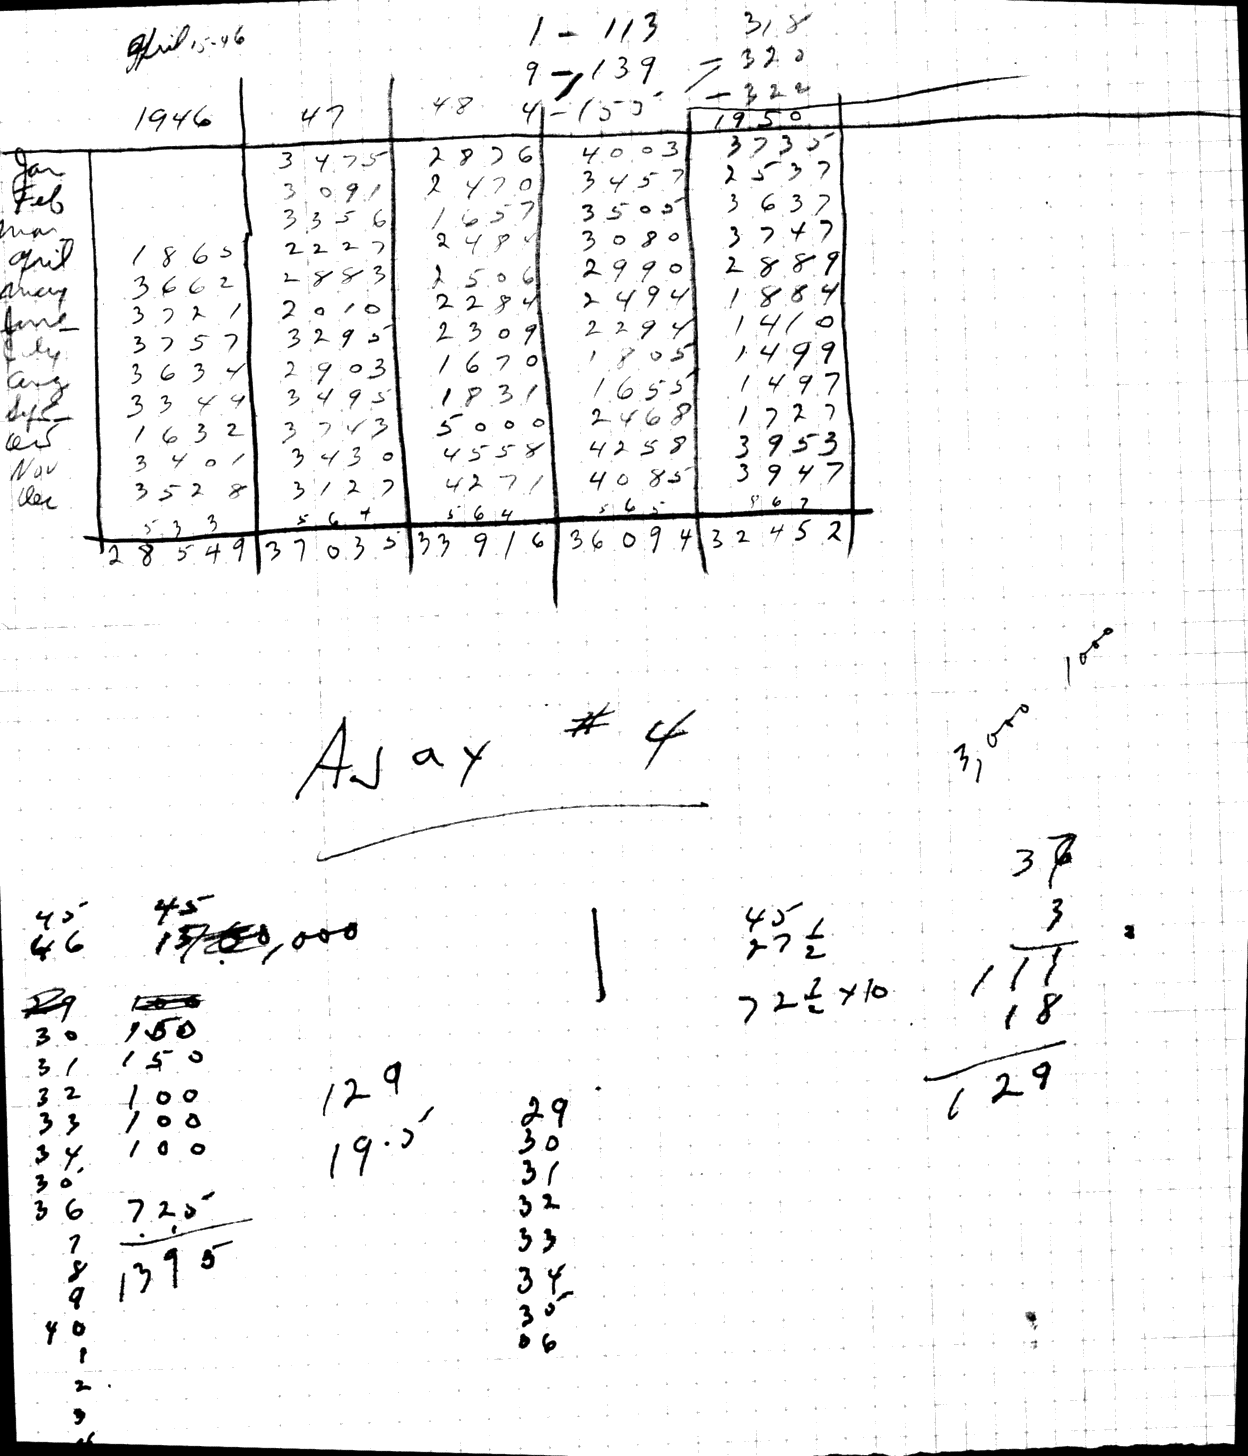 April 15-46
1 - 113 318
9 - 139 - 320
4 - 155 - 322
1946 47 48 1950
Jan 3475 2876 4003 3735
Feb 3091 2470 3457 2537
Mar 3356 1657 3505 3637
April 1865 2227 3080 3747
May 3662 2883 2506 2990 2889
June 3721 2010 2284 2494 1884
July 3757 3295 2309 2294 1410
Aug 3634 2903 1670 1805 1499
3344 3495 1831 1655 1497
Oct 1632 3743 5000 2468 1727
Nov 3401 3430 4558 4258 3953
Dec 3528 3127 4271 4085 3947
533 567 564 565
28549 37035 33916 36094 32452
1000
3,000
#4
3
45 45 45
46 27 1/2 3
72 1/2 x 10 111
18
129
30 150
31 150
32 100
33 100
34 100
36 725
7
1395
8
9
40
1
2
3
129
19.5
29
30
31
32
33
34
35
36